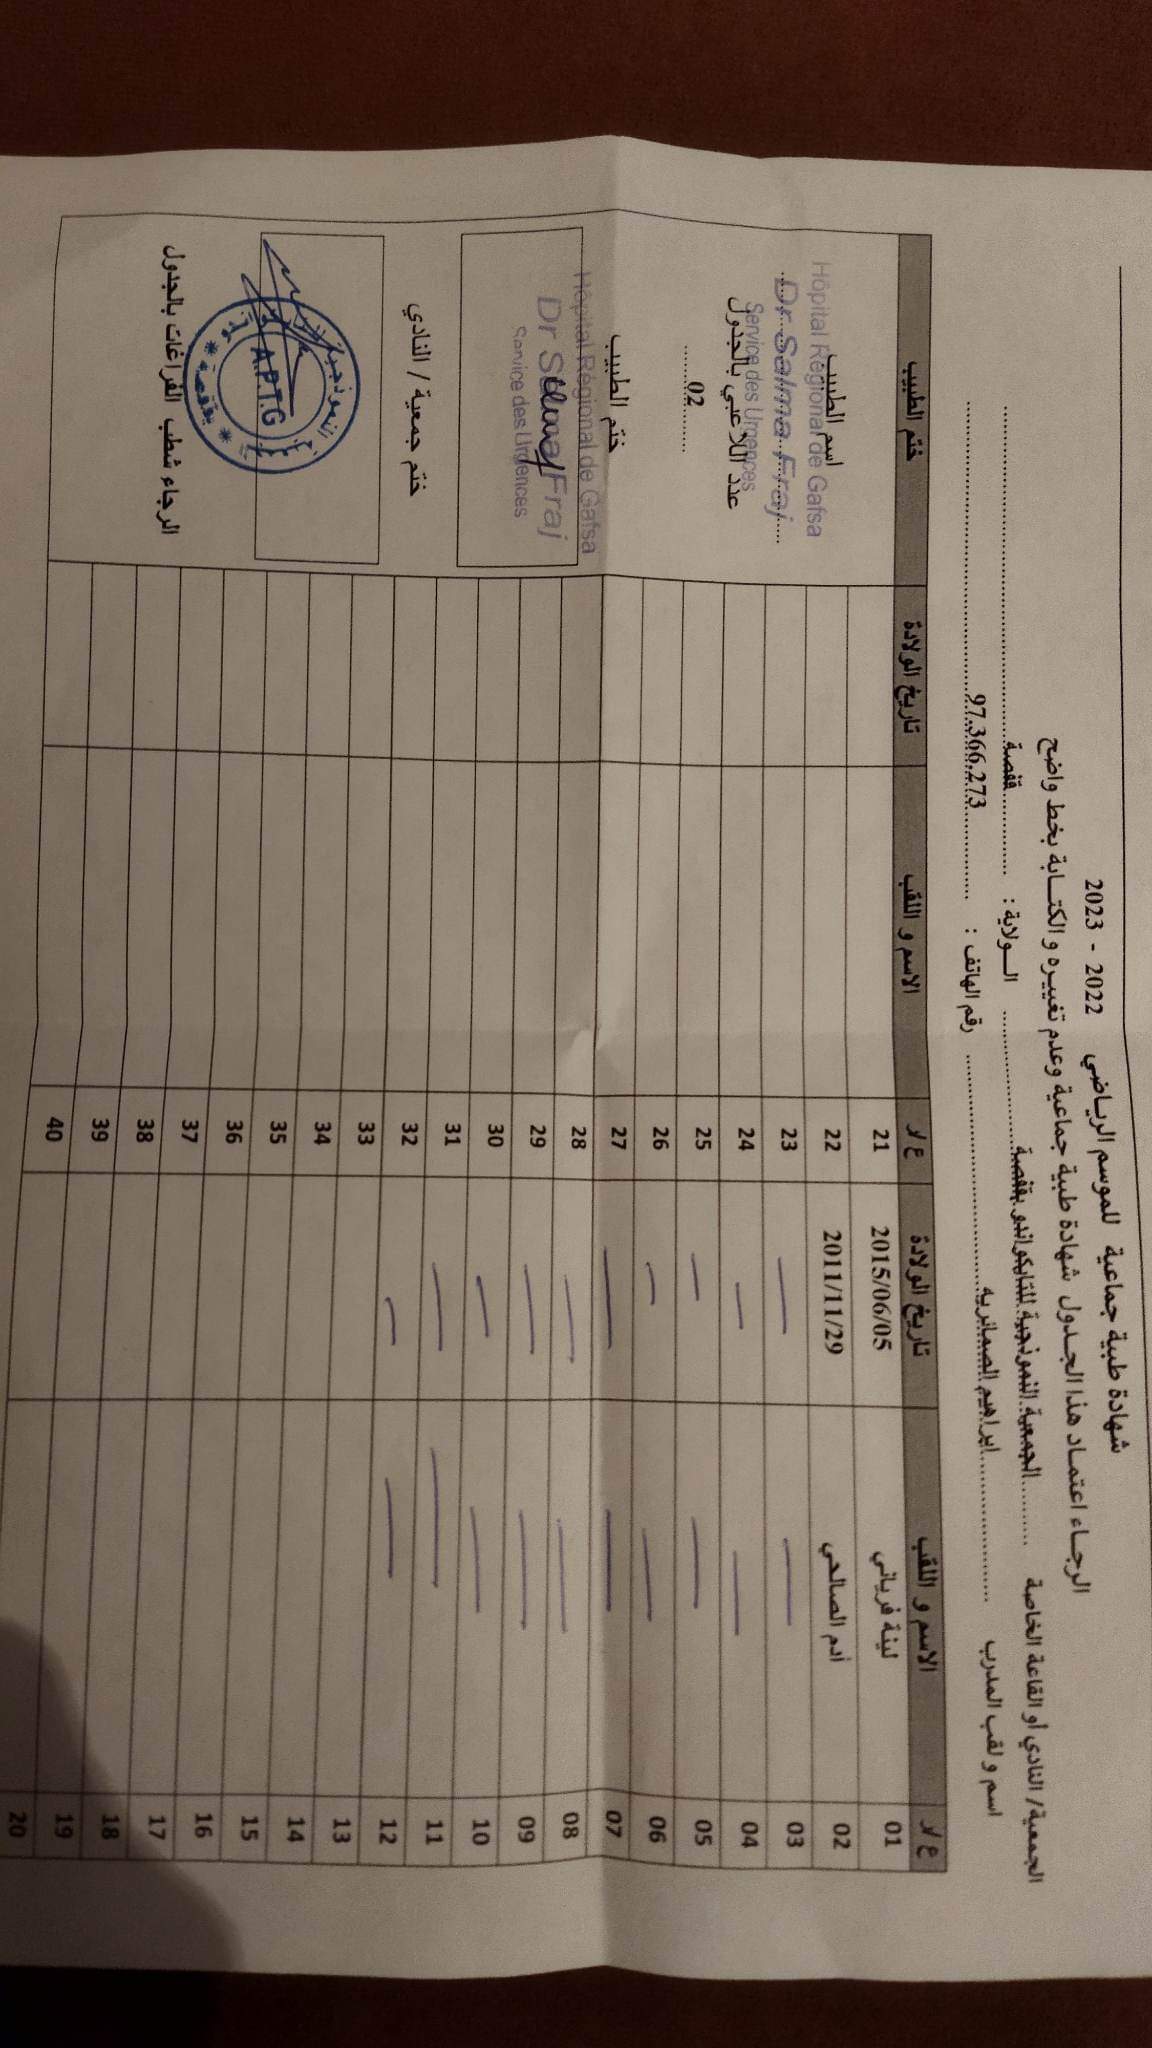 شهادة طبية جماعية للموسم الرياضي 2022 - 2023
الرجاء اعتماد هذا الجدول شهادة طبية جماعية وعدم تغييره والكتابة بخط واضح
الجمعية/ النادي أو القاعة الخاصة ..........الجمعية النموذجية للتايكواندو بقفصة.......... الولاية : ..........قفصة..........
اسم و لقب المدرب ..........ابراهيم الصمانريه.......... رقم الهاتف : ..........97.366.273..........
ع لا الاسم و اللقب تاريخ الولادة ع لا الاسم و اللقب تاريخ الولادة ختم الطبيب
01 لينة فرياني 2015/06/05 21
02 آدم الصالحي 2011/11/29 22
03 23
04 24
05 25
06 26
07 27
08 28
09 29
10 30
11 31
12 32
13 33
14 34
15 35
16 36
17 37
18 38
19 39
20 40
اسم الطبيب
Hôpital Régional de Gafsa
Dr Salma Fraj
Service des Urgences
عدد اللاعبي بالجدول
..........02..........
ختم الطبيب
Hôpital Régional de Gafsa
Dr Salma Fraj
Service des Urgences
ختم جمعية / النادي
A.P.T.G
النموذجية
بقفصة
الرجاء شطب الفراغات بالجدول